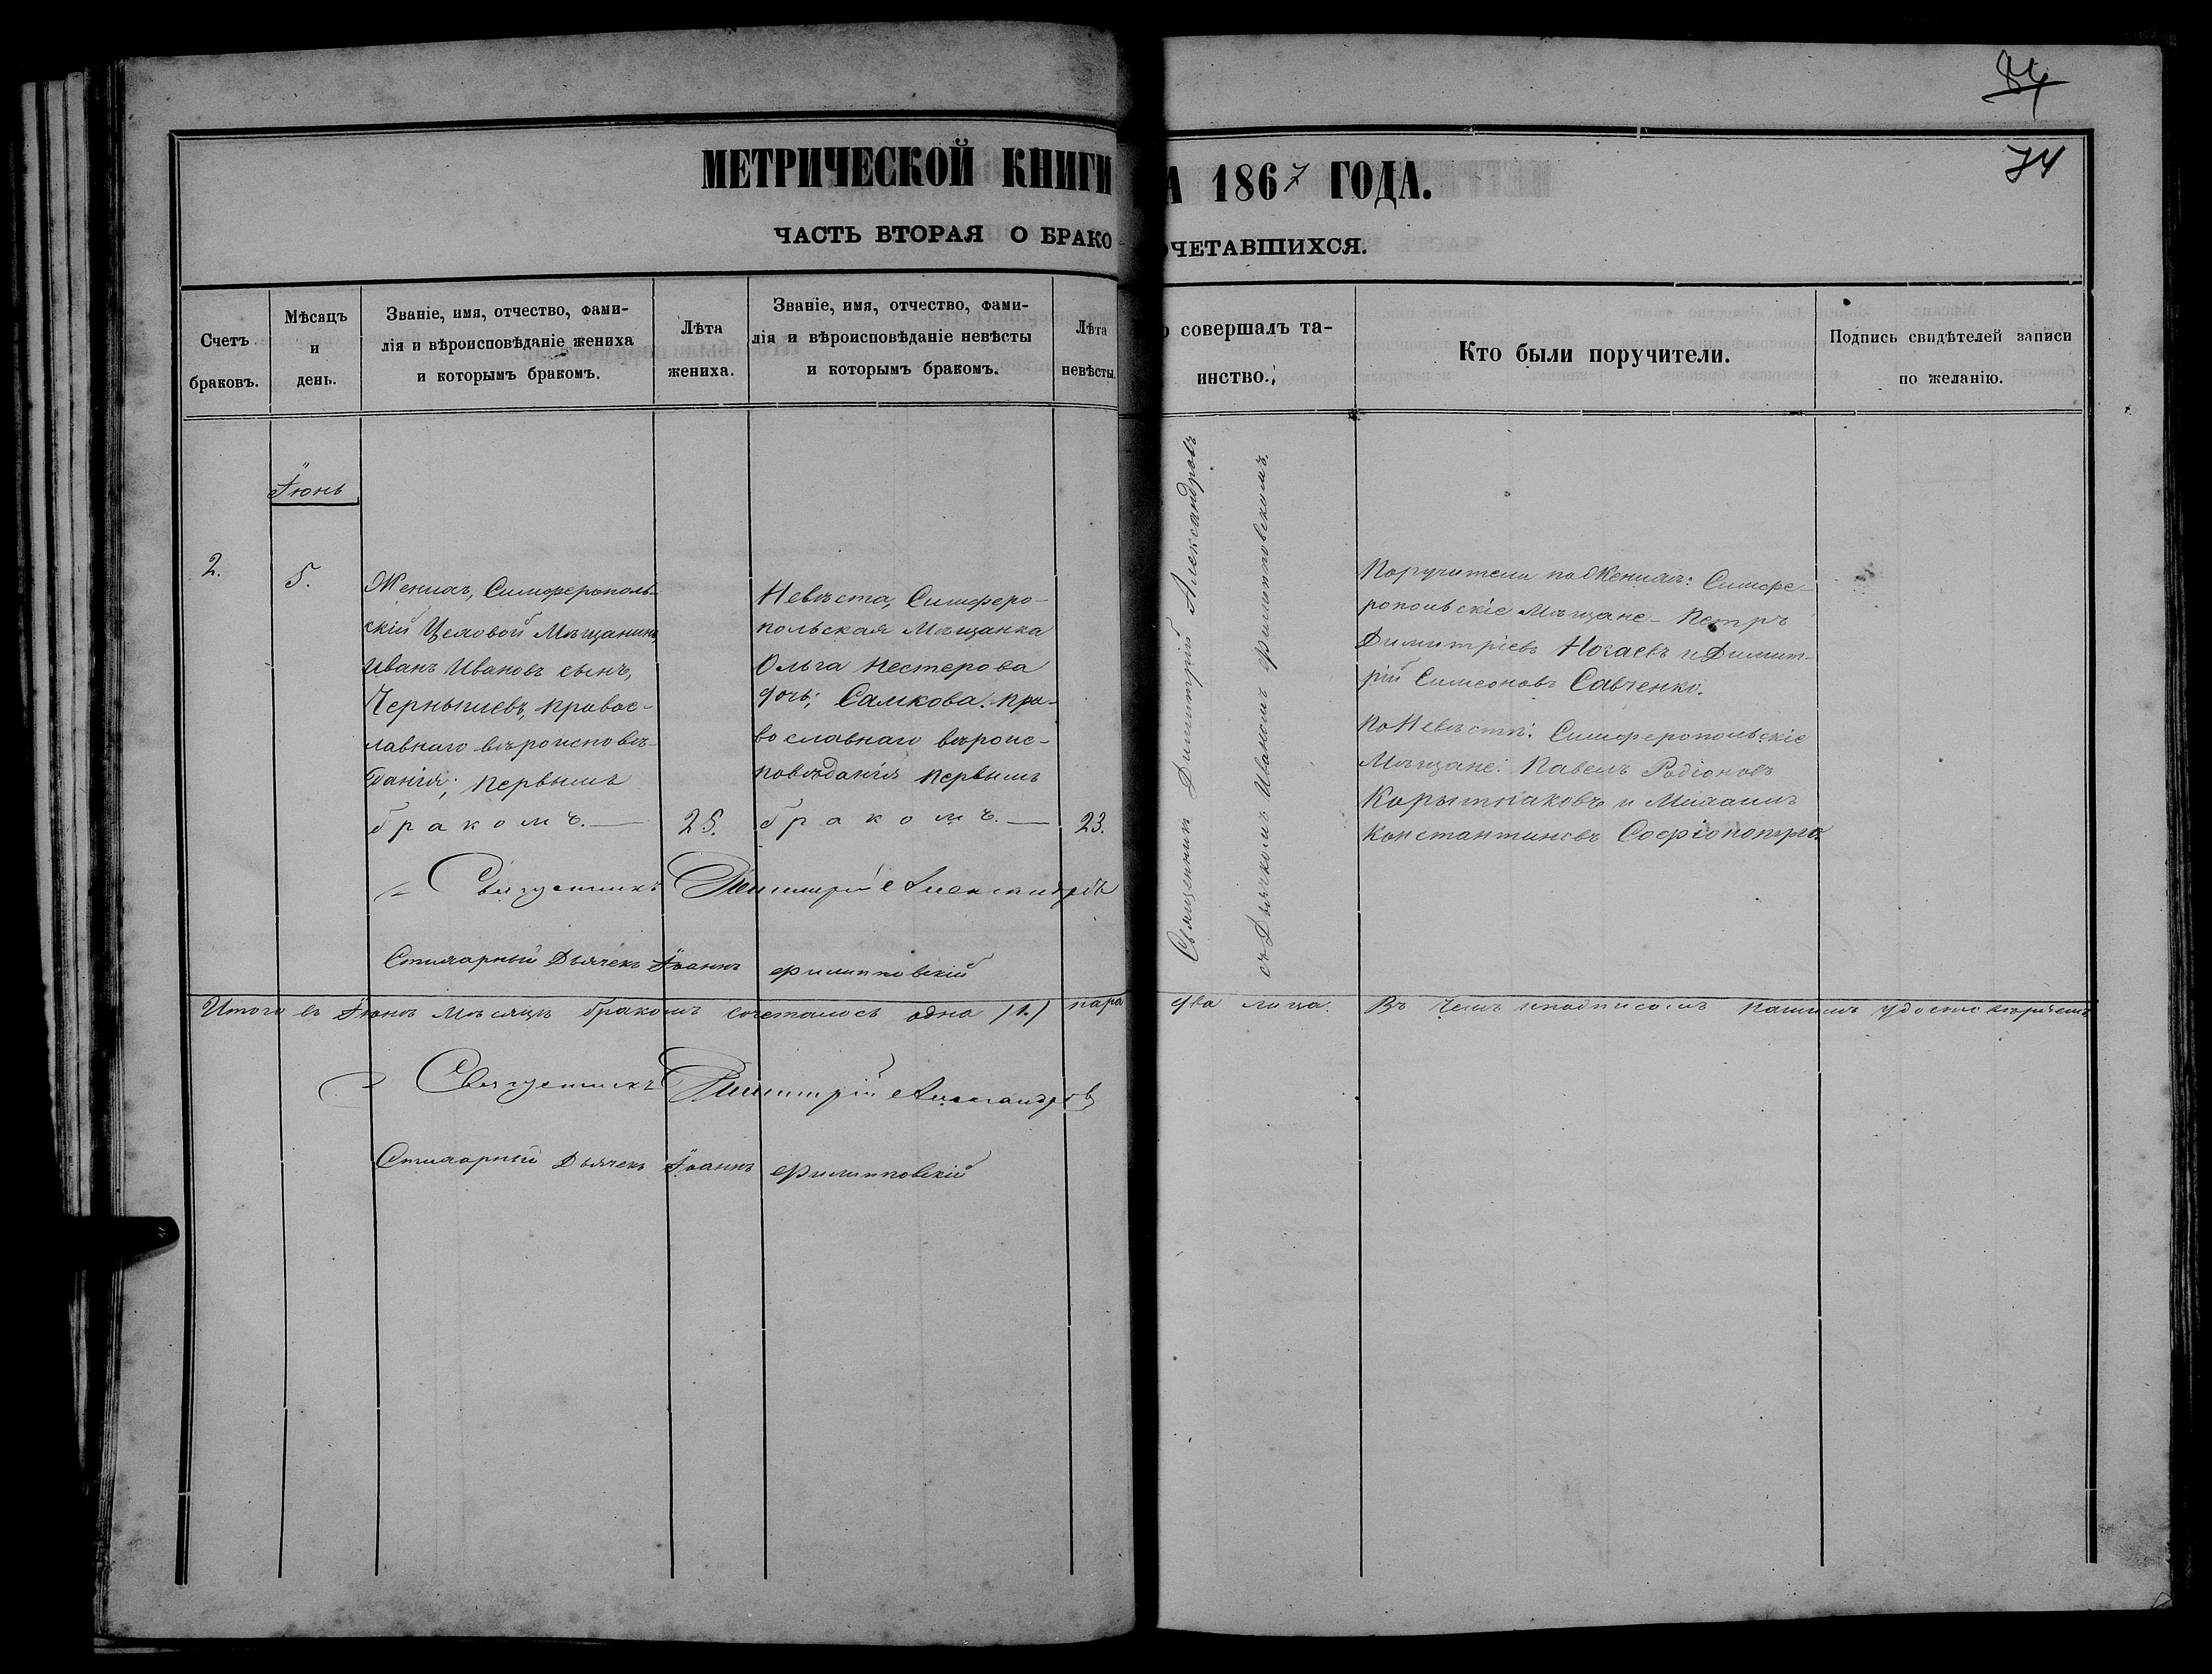 84
74
МЕТРИЧЕСКОЙ КНИГИ
А 1867 ГОДА.
ЧАСТЬ ВТОРАЯ О БРАКО-
ОЧЕТАВШИХСЯ.
Счетъ браковъ.
Мѣсяцъ и день.
Званіе, имя, отчество, фами-
лія и вѣроисповѣданіе жениха
и которымъ бракомъ.
Лѣта жениха.
Званіе, имя, отчество, фами-
лія и вѣроисповѣданіе невѣсты
и которымъ бракомъ.
Лѣта невѣсты.
о совершалъ та-
инство.
Кто были поручители.
Подпись свидѣтелей записи
по желанію.
Іюнь
2.
5.
Женихъ, Симферополь-
скій Цеховой Мѣщанинъ
Иванъ Ивановъ сынъ,
Чернышевъ, правос-
лавнаго вѣроисповѣ-
данія; первымъ
бракомъ.—
25.
Невѣста, Симферо-
польская Мѣщанка
Ольга Нестерова
дочь; Самкова. пра-
вославнаго вѣроис-
повѣданія первымъ
бракомъ.—
23.
Священникъ Димитрій Александровъ
съ Дьячкомъ Иваномъ Филипповскимъ.
Поручители по Женихѣ: Симфе-
ропольскіе Мѣщане - Петръ
Димитріевъ Ногаевъ и Димит-
рій Симеоновъ Савченко.
По Невѣстѣ: Симферопольскіе
Мѣщане: Павелъ Родіоновъ
Корытниковъ и Михаилъ
Константиновъ
Священникъ Димитрій Александровъ
Стихарный Дьячекъ Іоаннъ Филипповскій
Итого въ Іюнѣ Мѣсяцѣ бракомъ сочеталось одна /1./ пара два лица. Въ чемъ и подписомъ нашимъ удостовѣряемъ
Священникъ Димитрій Александровъ
Стихарный Дьячекъ Іоаннъ Филипповскій